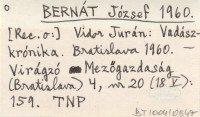 BERNÁT József 1960.
[Rec. o:] Vidor Jurán: Vadász-
krónika. Bratislava 1960. —
Virágzó Mezőgazdaság
(Bratislava) 4, nr 20 (18 V):
159. TNP